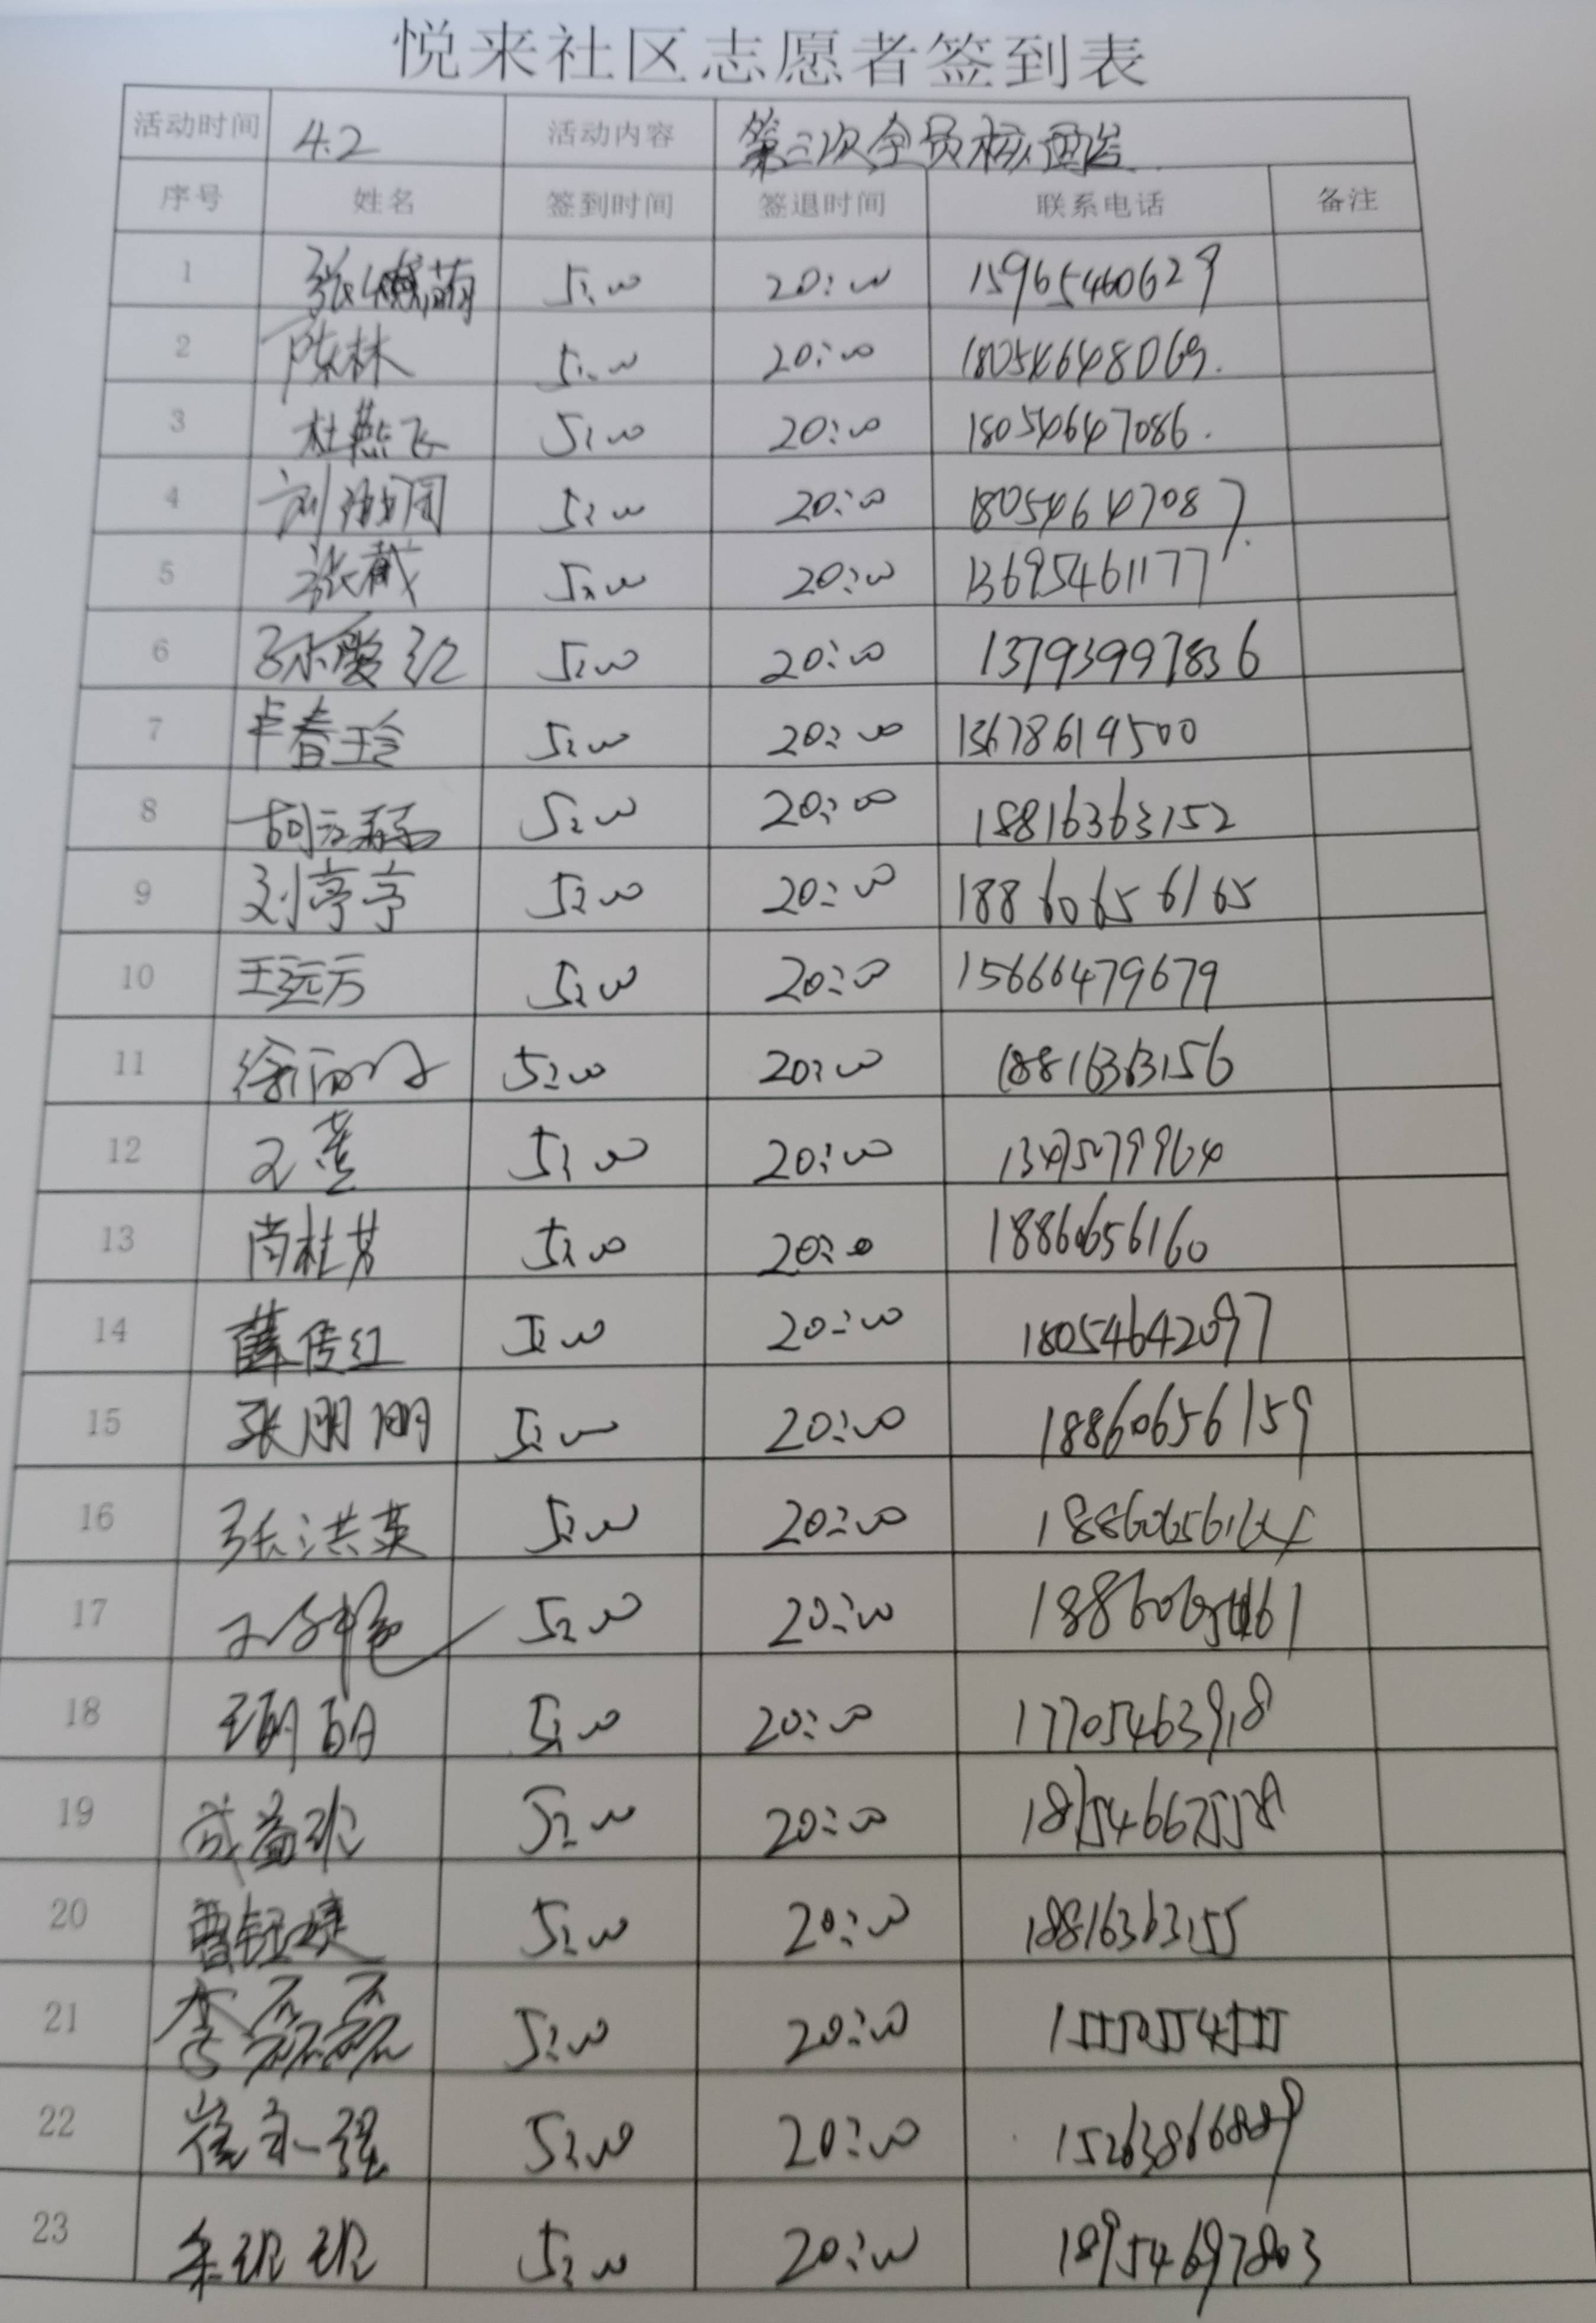 悦来社区志愿者签到表
活动时间 4.2 活动内容 第三次全员核酸
序号 姓名 签到时间 签退时间 联系电话 备注
1 5:00 20:00 15965460629
2 陈林 5:00 20:00 18054648069.
3 杜燕飞 5:00 20:00 18054647086.
4 5:00 20:00 18054647087.
5 5:00 20:00 13695461177
6 孙爱红 5:00 20:00 13793997836
7 春玲 5:00 20:00 13678619500
8 5:00 20:00 18816363152
9 刘亭亭 5:00 20:00 18860656165
10 王远方 5:00 20:00 15666479679
11 5:00 20:00 18816363156
12 5:00 20:00
13 尚杜芳 5:00 20:00 18860656160
14 薛传红 5:00 20:00 18054642097
15 张朋朋 5:00 20:00 18860656159
16 张洪英 5:00 20:00 18860656164
17 5:00 20:00
18 5:00 20:00 17705463918
19 5:00 20:00 18154667558
20 5:00 20:00 18816363155
21 李磊磊 5:00 20:00
22 崔永强 5:00 20:00 15263866889
23 朱班班 5:00 20:00 18954697803